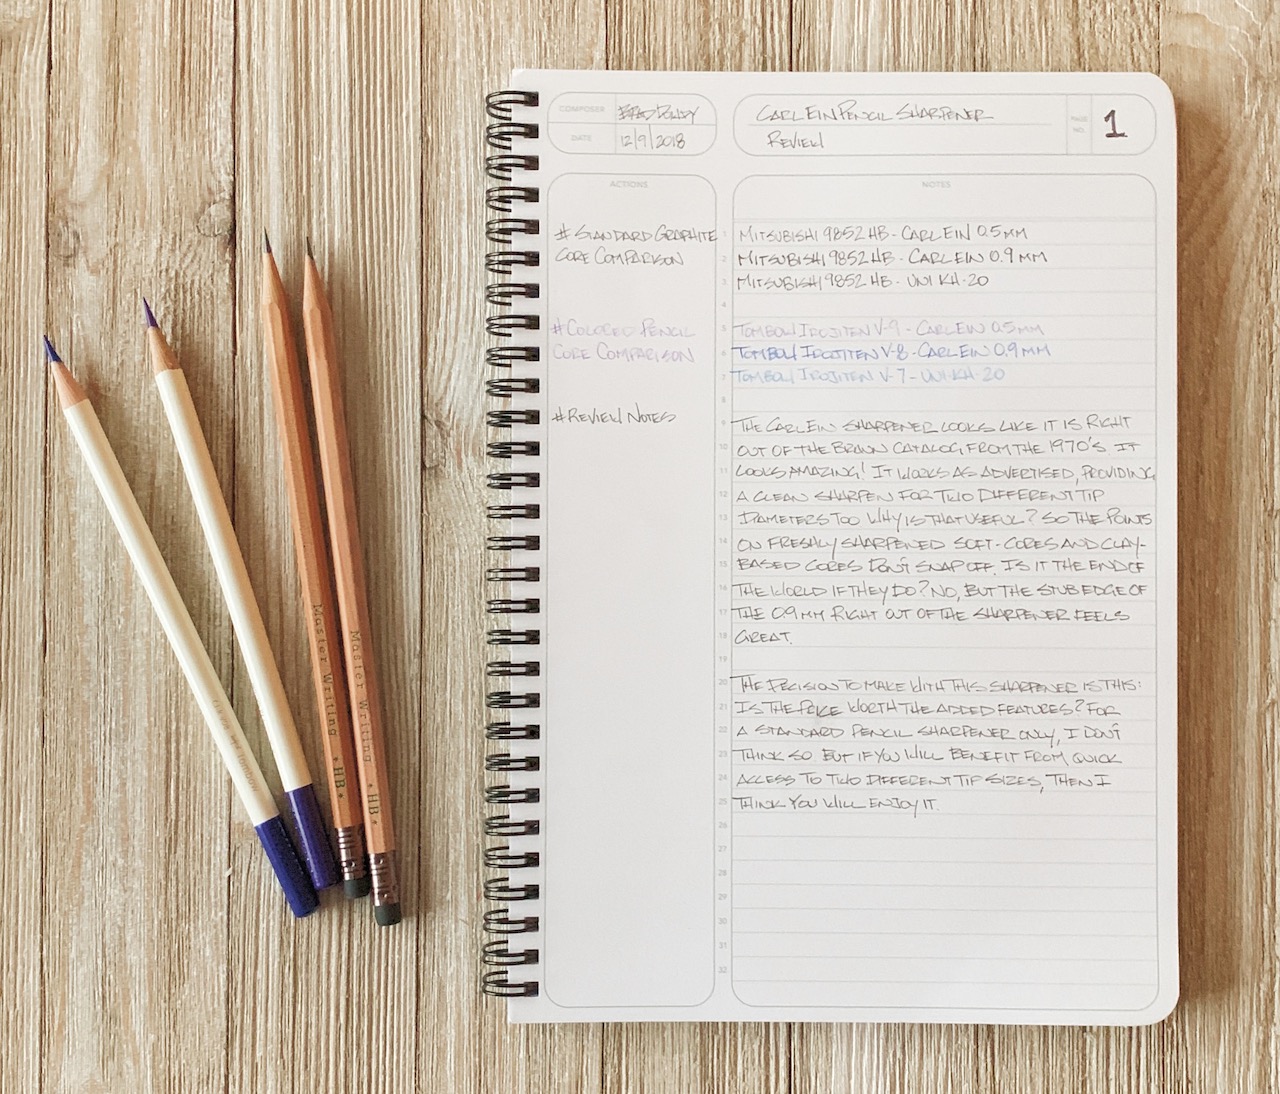 COMPOSER
BRAD DOWDY
DATE
12/9/2018
CARL EIN PENCIL SHARPENER
REVIEW
PAGE NO.
1
ACTIONS
NOTES
# STANDARD GRAPHITE
CORE COMPARISON
1 MITSUBISHI 9852 HB - CARL EIN 0.5MM
2 MITSUBISHI 9852 HB - CARL EIN 0.9MM
3 MITSUBISHI 9852 HB - UNI KH-20
4
# COLORED PENCIL
CORE COMPARISON
5 TOMBOW IROJITEN V-9 - CARL EIN 0.5MM
6 TOMBOW IROJITEN V-8 - CARL EIN 0.9MM
7 TOMBOW IROJITEN V-7 - UNI KH-20
8
# REVIEW NOTES
9 THE CARL EIN SHARPENER LOOKS LIKE IT IS RIGHT
10 OUT OF THE BRAUN CATALOG FROM THE 1970'S. IT
11 LOOKS AMAZING! IT WORKS AS ADVERTISED, PROVIDING
12 A CLEAN SHARPEN FOR TWO DIFFERENT TIP
13 DIAMETERS TOO. WHY IS THAT USEFUL? SO THE POINTS
14 ON FRESHLY SHARPENED SOFT-CORES AND CLAY-
15 BASED CORES DON'T SNAP OFF. IS IT THE END OF
16 THE WORLD IF THEY DO? NO, BUT THE STUB EDGE OF
17 THE 0.9MM RIGHT OUT OF THE SHARPENER FEELS
18 GREAT.
19
20 THE DECISION TO MAKE WITH THIS SHARPENER IS THIS:
21 IS THE PRICE WORTH THE ADDED FEATURES? FOR
22 A STANDARD PENCIL SHARPENER ONLY, I DON'T
23 THINK SO. BUT IF YOU WILL BENEFIT FROM QUICK
24 ACCESS TO TWO DIFFERENT TIP SIZES, THEN I
25 THINK YOU WILL ENJOY IT.
26
27
28
29
30
31
32
Master Writing * HB *
Master Writing * HB *
Tombow